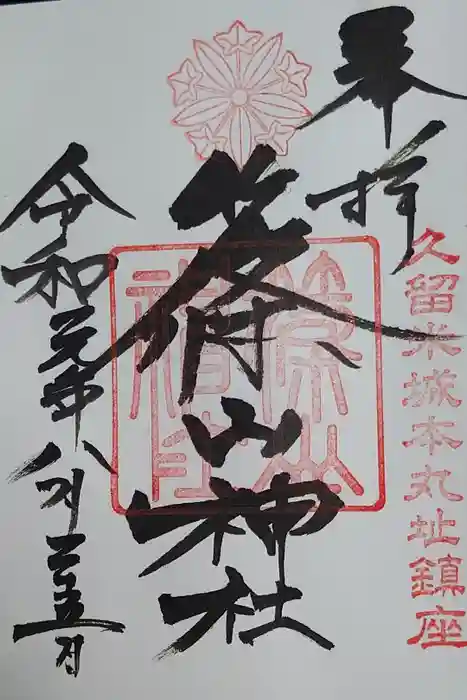 奉拝
久留米城本丸址鎮座
篠山神社
令和元年八月二十五日